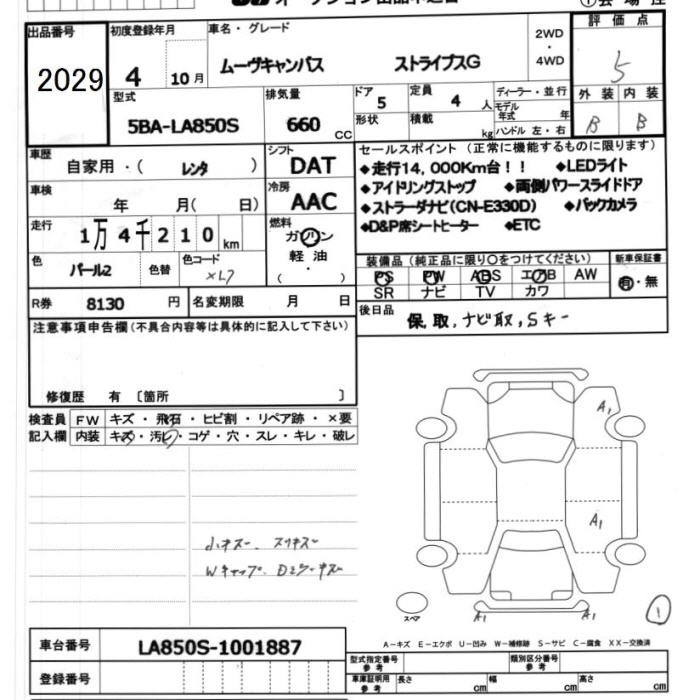 出品番号 2029
初度登録年月 4 10月
車名・グレード ムーヴキャンバス ストライプスG
2WD・4WD
評価点 5
型式 5BA-LA850S
排気量 660 CC
ドア 5 形状
定員 4 人 積載 kg
ディーラー・並行
モデル年式 年
ハンドル 左・右
外装 B 内装 B
車歴 自家用・( レンタ )
シフト DAT
車検 年 月( 日)
冷房 AAC
走行 1万4千210km
燃料 ガソリン・軽油・( )
色 パール2 色替
色コード
R券 8130 円
名変期限 月 日
セールスポイント(正常に機能するものに限ります)
◆走行14,000Km台!! ◆LEDライト
◆アイドリングストップ ◆両側パワースライドドア
◆ストラーダナビ(CN-E330D) ◆バックカメラ
◆D&P席シートヒーター ◆ETC
装備品(純正品に限り○をつけてください)
PS PW ABS エアB AW
SR ナビ TV カワ
新車保証書 有・無
後日品 保,取,ナビ取,Sキー
注意事項申告欄(不具合内容等は具体的に記入して下さい)
修復歴 有 〔箇所 〕
検査員記入欄
FW キズ・飛石・ヒビ割・リペア跡・×要
内装 キズ・汚レ・コゲ・穴・スレ・キレ・破レ
小キズー、スリキズー
A1
A1
A1
A1
スペア
1
A-キズ E-エクボ U-凹み W-補修跡 S-サビ C-腐食 XX-交換済
車台番号 LA850S-1001887
登録番号
型式指定番号 参考
類別区分番号 参考
車庫証明用 参考 長さ cm 幅 cm 高さ cm